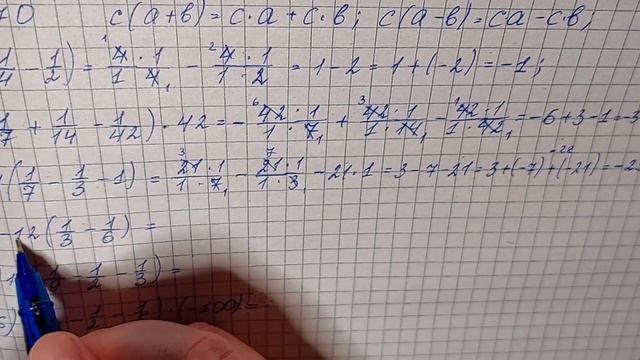 70 c(a+b) = c·a + c·b; c(a-b) = ca - cb;
1/4 - 1/2) = 4·1/1·4 - 4·1/1·2 = 1 - 2 = 1 + (-2) = -1;
1/7 + 1/14 - 1/42)·42 = -42·1/1·7 + 42·1/1·14 - 42·1/1·42 = -6+3-1=-3
(1/7 - 1/3 - 1) = 21·1/1·7 - 21·1/1·3 - 21·1 = 3-7-21 = 3+(-7)+(-21) = -2
-12(1/3 - 1/6) =
- 1/2 - 1/3) =
- 1/2 - )·(-100) =